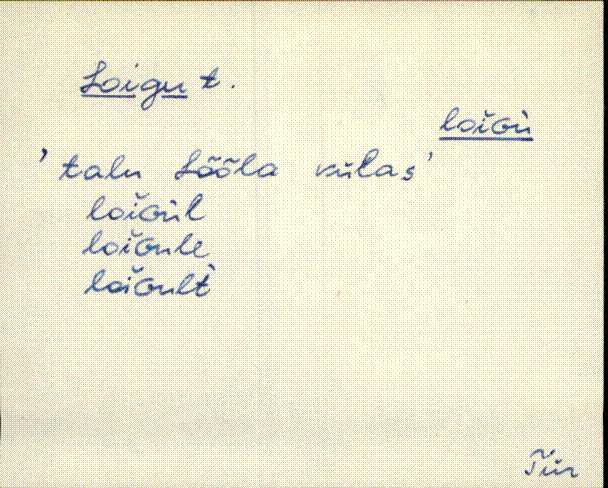 Loigu t.
loiɢù
'talu Lõõla külas'
loiɢùl
loiɢule
loiɢult
Tür